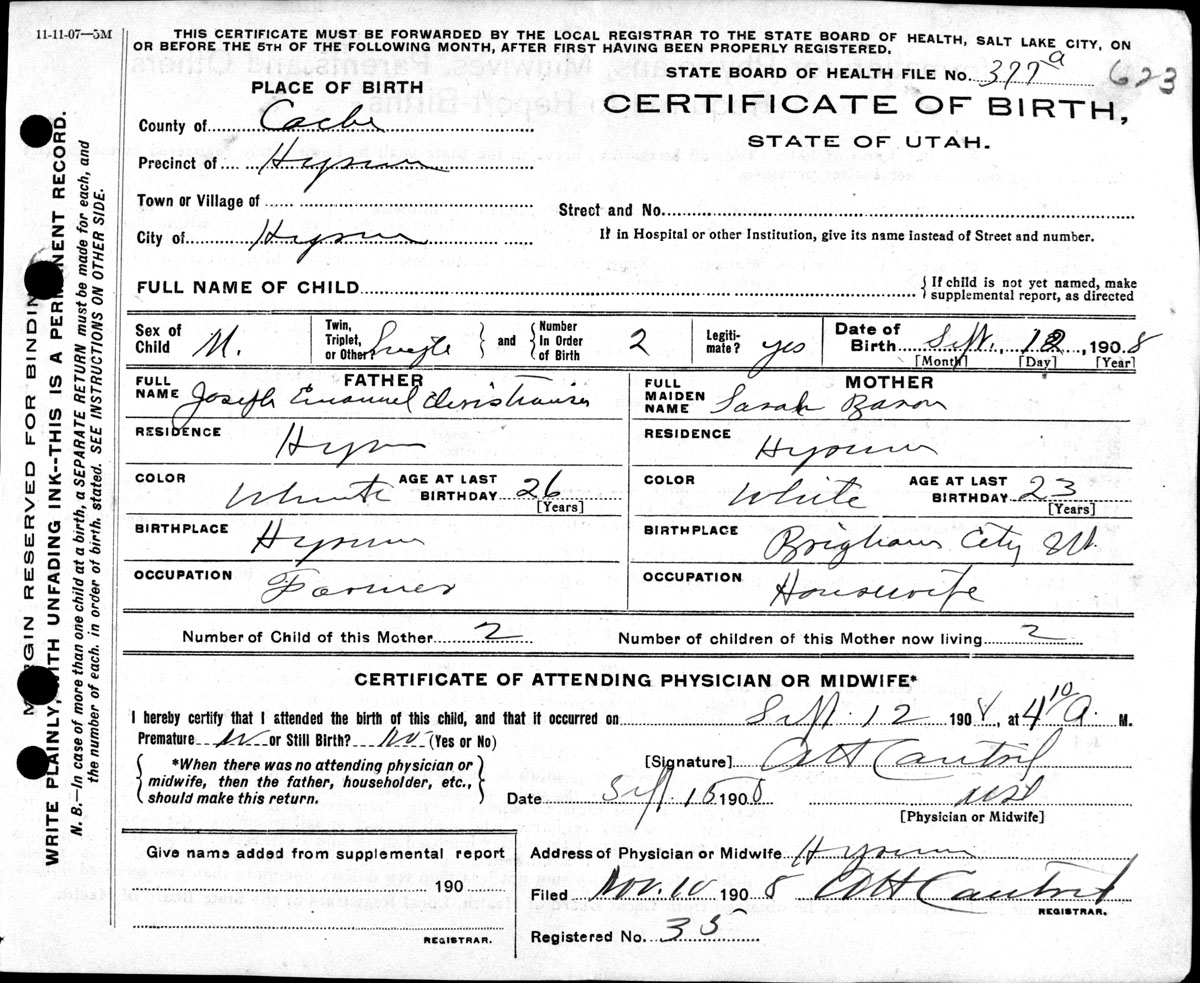 11-11-07—5M
THIS CERTIFICATE MUST BE FORWARDED BY THE LOCAL REGISTRAR TO THE STATE BOARD OF HEALTH, SALT LAKE CITY, ON
OR BEFORE THE 5TH OF THE FOLLOWING MONTH, AFTER FIRST HAVING BEEN PROPERLY REGISTERED.
STATE BOARD OF HEALTH FILE No. 377a 623
PLACE OF BIRTH
CERTIFICATE OF BIRTH,
STATE OF UTAH.
County of Cache
Precinct of Hyrum
Town or Village of
Street and No.
City of Hyrum
If in Hospital or other Institution, give its name instead of Street and number.
FULL NAME OF CHILD
{ If child is not yet named, make
supplemental report, as directed
Sex of Child M.
Twin, Triplet, or Other Single } and { Number In Order of Birth 2
Legitimate? yes
Date of Birth Sept. 12, 1908
[Month] [Day] [Year]
FATHER
FULL NAME Joseph Emanuel
MOTHER
FULL MAIDEN NAME Sarah Baron
RESIDENCE Hyrum
RESIDENCE Hyrum
COLOR White AGE AT LAST BIRTHDAY 26 [Years]
COLOR White AGE AT LAST BIRTHDAY 23 [Years]
BIRTHPLACE Hyrum
BIRTHPLACE Brigham City Ut.
OCCUPATION Farmer
OCCUPATION Housewife
Number of Child of this Mother 2 Number of children of this Mother now living 2
CERTIFICATE OF ATTENDING PHYSICIAN OR MIDWIFE*
I hereby certify that I attended the birth of this child, and that it occurred on Sept. 12 1908, at 4 10 A. M.
Premature No or Still Birth? No (Yes or No)
{ *When there was no attending physician or
midwife, then the father, householder, etc.,
should make this return. }
[Signature]
Date Sept 15 1908
[Physician or Midwife]
Give name added from supplemental report
190
REGISTRAR.
Address of Physician or Midwife Hyrum
Filed Nov. 10 1908
REGISTRAR.
Registered No. 35
MARGIN RESERVED FOR BINDING
WRITE PLAINLY, WITH UNFADING INK--THIS IS A PERMANENT RECORD.
N. B.—In case of more than one child at a birth, a SEPARATE RETURN must be made for each, and
the number of each, in order of birth, stated. SEE INSTRUCTIONS ON OTHER SIDE.